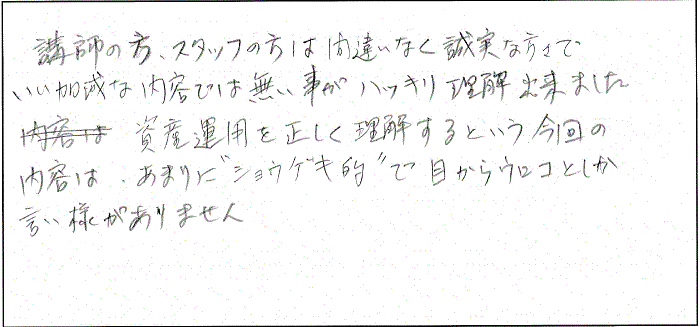 講師の方、スタッフの方は間違いなく誠実な方々で
いい加減な内容では無い事がハッキリ理解出来ました
内容は 資産運用を正しく理解するという今回の
内容は、あまりに"ショウゲキ的"で目からウロコとしか
言い様がありません